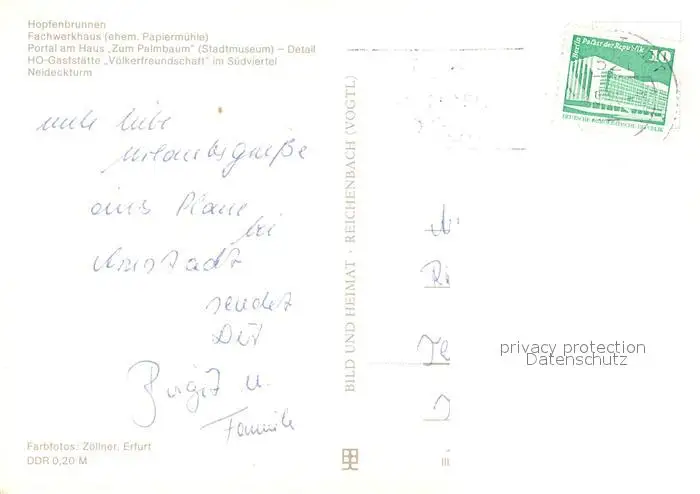 Hopfenbrunnen
Fachwerkhaus (ehem. Papiermühle)
Portal am Haus „Zum Palmbaum" (Stadtmuseum) — Detail
HO-Gaststätte „Völkerfreundschaft" im Südviertel
Neideckturm
liebe
Urlaubsgrüße
aus Plaue
bei
Arnstadt
sendet
Dir
Birgit u.
Familie
Farbfotos: Zöllner, Erfurt
DDR 0,20 M
BILD UND HEIMAT · REICHENBACH (VOGTL)
Berlin Palast der Republik
10
DEUTSCHE DEMOKRATISCHE REPUBLIK
privacy protection
Datenschutz